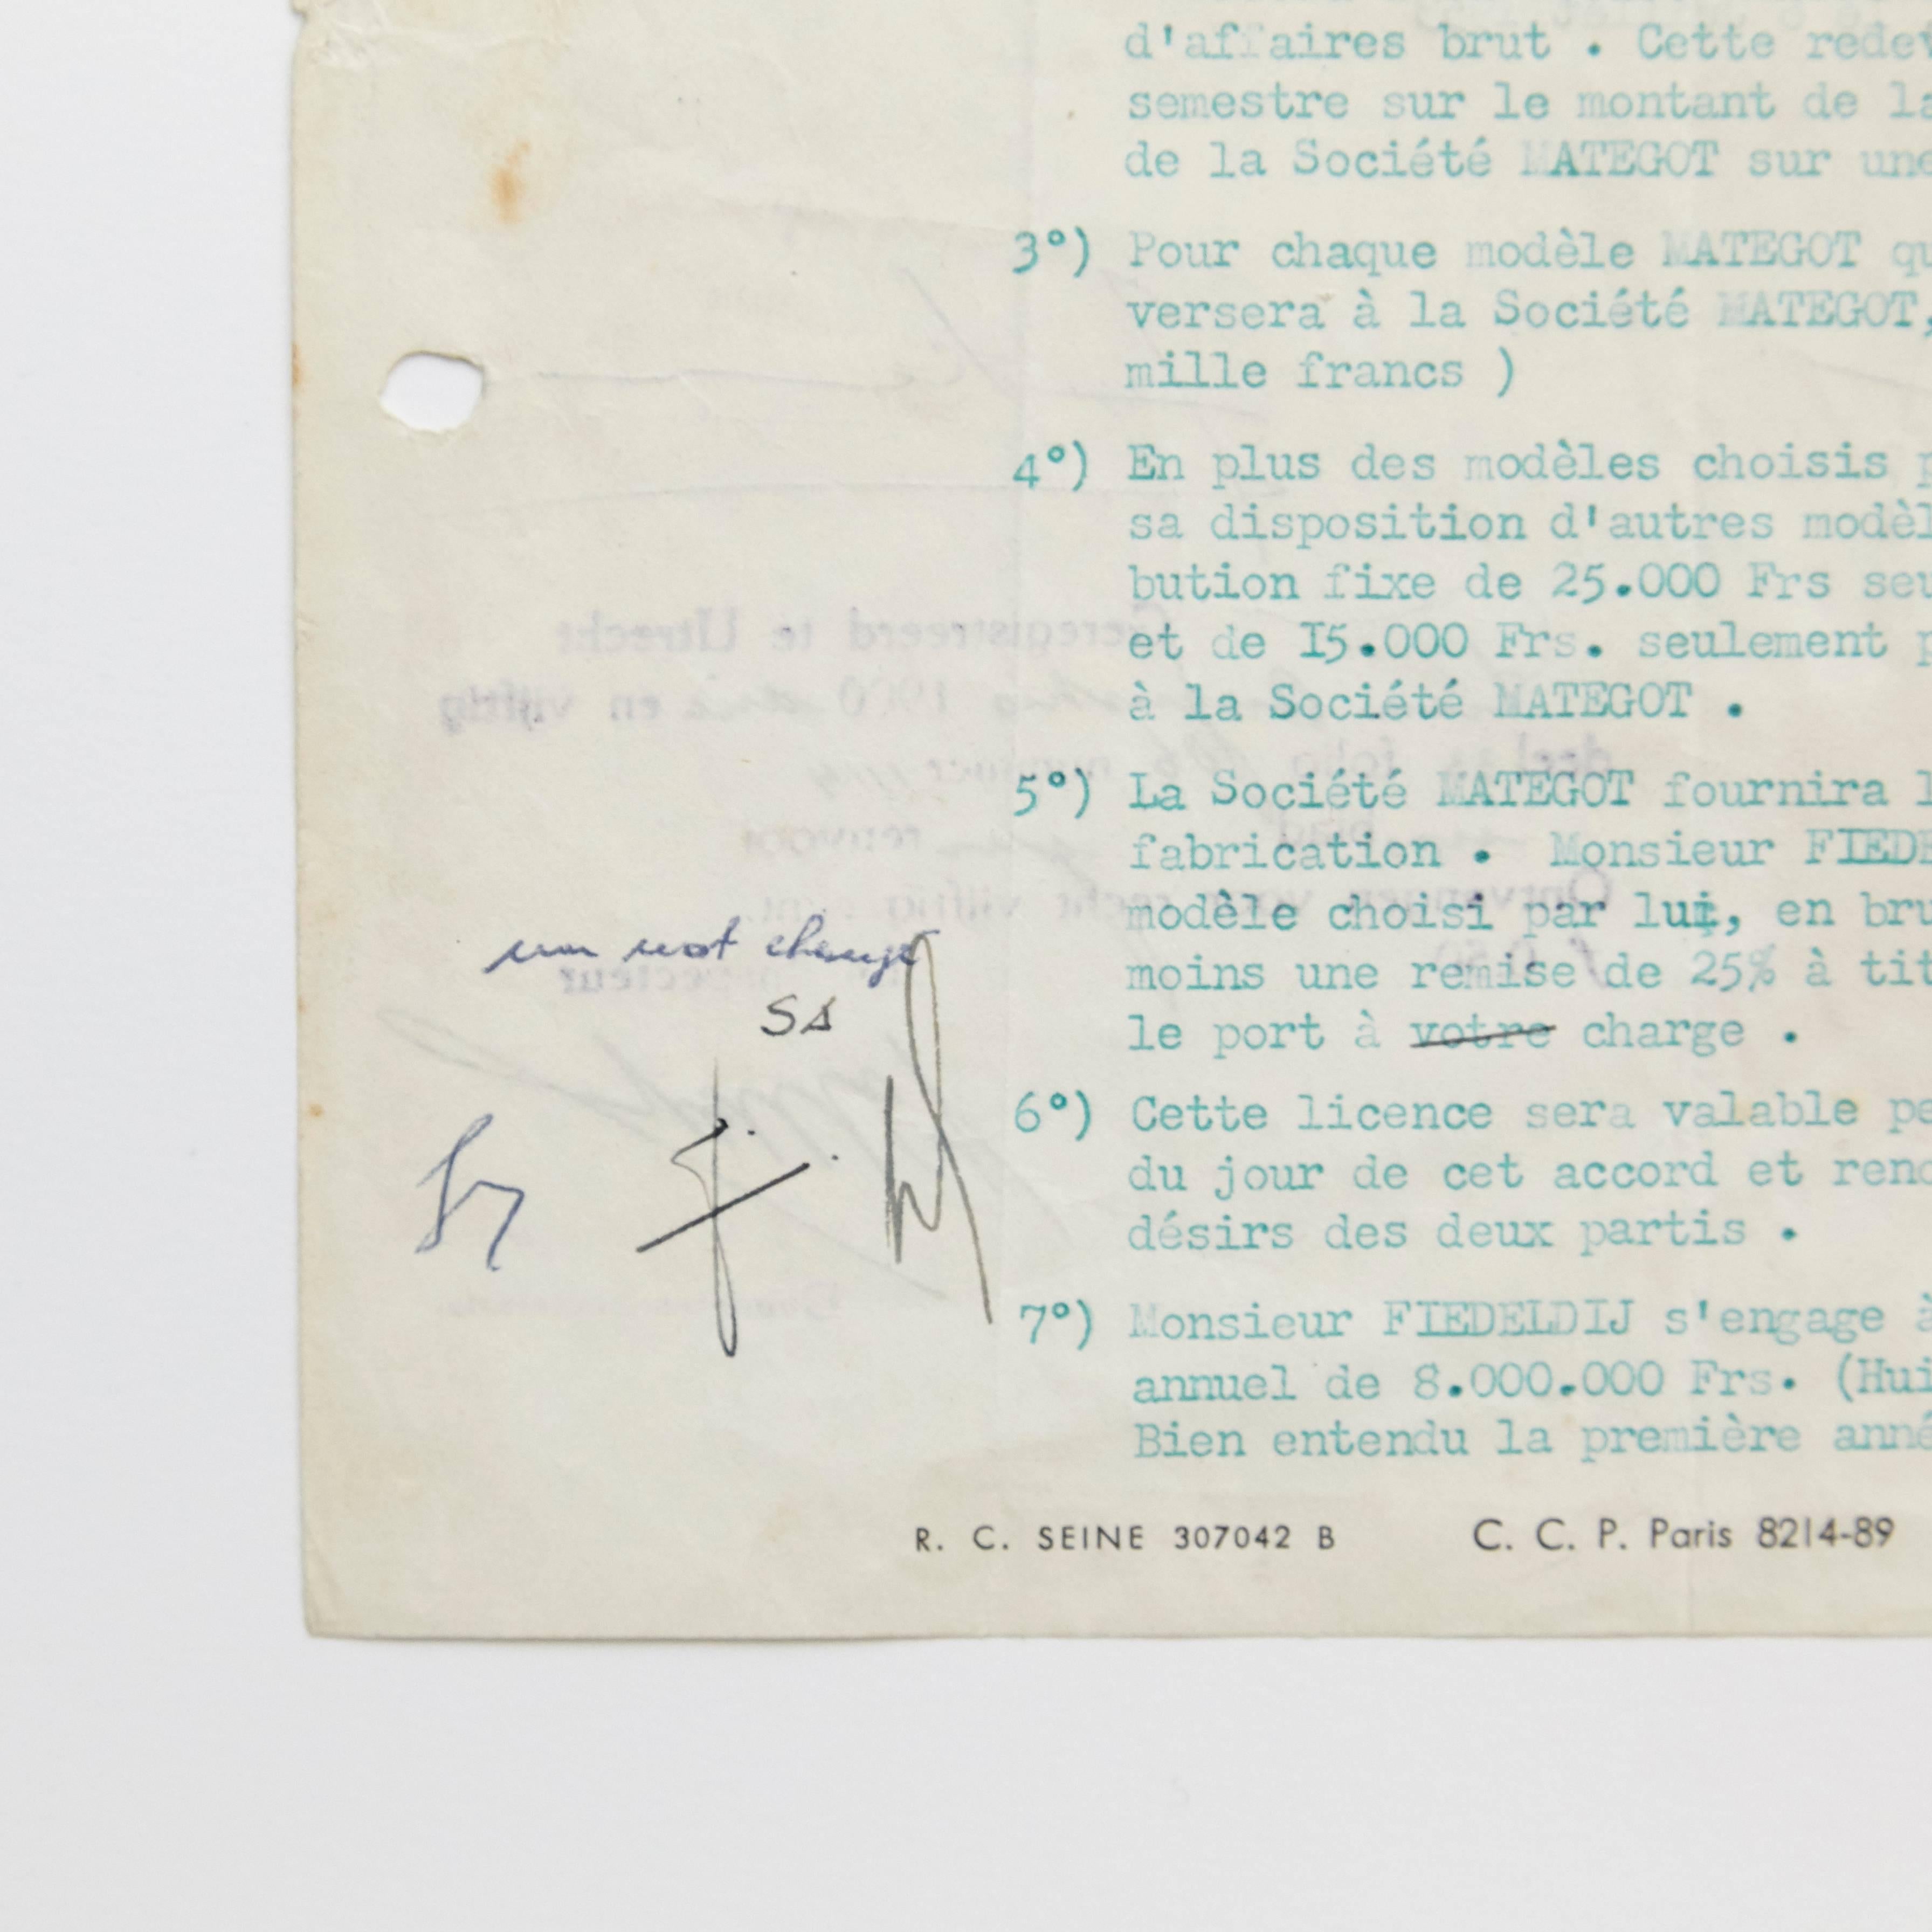 d'affaires brut . Cette redev
semestre sur le montant de la
de la Société MATEGOT sur une
3°) Pour chaque modèle MATEGOT qu
versera à la Société MATEGOT,
mille francs )
4°) En plus des modèles choisis p
sa disposition d'autres modèl
bution fixe de 25.000 Frs seu
et de I5.000 Frs. seulement p
à la Société MATEGOT .
5°) La Société MATEGOT fournira l
fabrication . Monsieur FIEDE
modèle choisi par lui, en bru
moins une remise de 25% à tit
le port à votre charge .
un mot changé
sa
6°) Cette licence sera valable pe
du jour de cet accord et reno
désirs des deux partis .
7°) Monsieur FIEDELDIJ s'engage à
annuel de 8.000.000 Frs. (Hui
Bien entendu la première anné
R. C. SEINE 307042 B C. C. P. Paris 8214-89
Geregistreerd te Utrecht
en vijftig